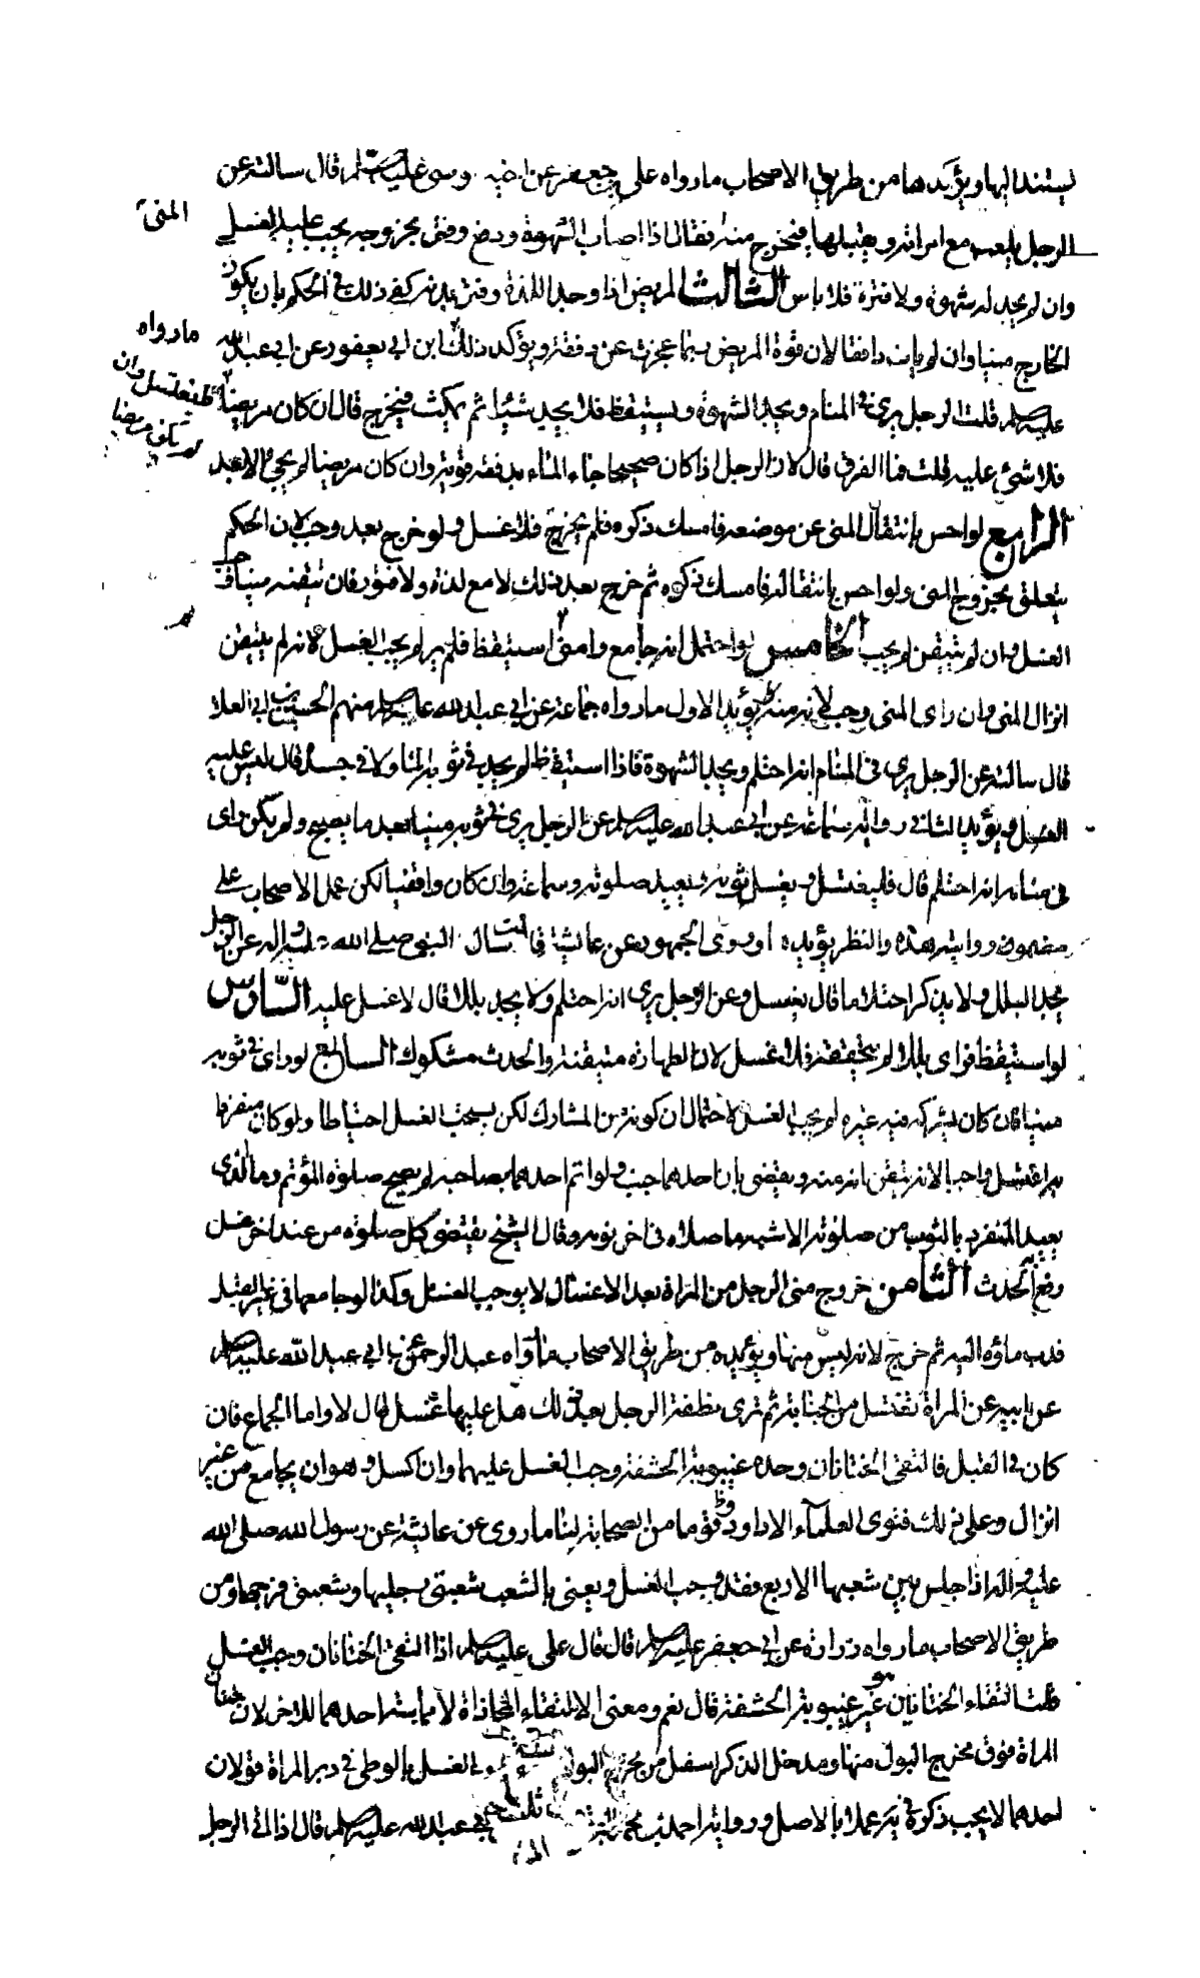 يستند اليها ويؤيدها من طريق الاصحاب ما رواه علي بن جعفر عن اخيه موسى عليه السلم قال سالته عن
الرجل يلعب مع امراته ويقبلها فيخرج منه فقال اذا اصاب الشهوة ودفع وفتر بخروجه يجب عليه الغسل
المنى
وان لم يجد له شهوة ولا فترة فلا باس الثالث المريض اذا وجد اللذة وفتر بدنه كفى ذلك في الحكم بان يكون
الخارج منيا وان لم يات دافقا لان قوة المريض ربما عجزت عن دفقه ويؤكد ذلك ابن ابي يعفور عن ابي عبد الله
ما رواه
عليه السلم قلت الرجل يرى في المنام ويجد الشهوة ويستيقظ فلا يجد شيئا ثم يمكث فيخرج قال ان كان مريضا
فليغتسل وان
لم يكن مريضا
فلا شئ عليه قلت فما الفرق قال لان الرجل اذا كان صحيحا جاء الماء بدفقة قوية وان كان مريضا لم يجئ الا بعد
الرابع لو احس بانتقال المنى عن موضعه فامسك ذكره فلم يخرج فلا غسل ولو خرج بعد وجب لان الحكم
يتعلق بخروج المنى ولو احس بانتقاله فامسك ذكره ثم خرج بعد ذلك لا مع لذة ولا فتور فان تيقنه منيا وجب
الغسل وان لم يتيقن لم يجب الخامس لو احتمل انه جامع وامنى ثم استيقظ فلم ير لم يجب الغسل لانه لم يتيقن
انزال المنى وان راى المنى وجب لانه منه ويؤيد الاول ما رواه جماعة عن ابي عبد الله عليه السلم منهم الحسين بن ابي العلا
قال سالته عن الرجل يرى في المنام انه احتلم ويجد الشهوة فاذا استيقظ لم يجد في ثوبه الماء ولا في جسده قال ليس عليه
الغسل ويؤيد الثاني رواية سماعة عن ابي عبد الله عليه السلم عن الرجل يرى في ثوبه منيا بعد ما يصبح ولم يكن راى
في منامه انه احتلم قال فليغتسل ويغسل ثوبه ويعيد صلوته وسماعة وان كان واقفيا لكن عمل الاصحاب على
مضمون روايته هذه والنظر يؤيده وروى الجمهور عن عائشة قالت سال النبي صلى الله عليه واله عن الرجل
يجد البلل ولا يذكر احتلاما قال يغتسل وعن الرجل يرى انه احتلم ولا يجد بللا قال لا غسل عليه السادس
لو استيقظ فراى بللا لم يتحققه فلا غسل لان الطهارة متيقنة والحدث مشكوك السابع لو راى في ثوبه
منيا فان كان يشركه فيه غيره لم يجب الغسل لاحتمال ان كونه من المشارك لكن يستحب الغسل احتياطا ولو كان منفردا
به اغتسل واجبا لانه تيقن انه منه ويقضى بان احدهما جنب ولو ائتم احدهما بصاحبه لم يصح صلوة المؤتم وما الذى
يعيد المنفرد بالثوب من صلوته الاشبه ما صلاه في اخر نومه وقال الشيخ يقتضى كل صلوة من عند اخر غسل
رفع به الحدث الثامن خروج منى الرجل من المراة بعد الاغتسال لا يوجب الغسل وكذا لو جامعها في غير القبل
فدب ماؤه اليه ثم خرج لانه ليس منها ويؤيده من طريق الاصحاب ما رواه عبد الرحمن بن ابي عبد الله عليه السلم
عن ابيه عن المراة تغتسل من الجنابة ثم ترى نطفة الرجل بعد ذلك هل عليها غسل قال لا واما الجماع فان
كان في القبل فالتقى الختانان وحده غيبوبة الحشفة وجب الغسل عليهما وان اكسل وهو ان يجامع من غير
انزال وعلى ذلك فتوى العلماء الا داود وقوما من الصحابة لنا ما روى عن عائشة عن رسول الله صلى الله
عليه واله اذا جلس بين شعبها الاربع فقد وجب الغسل ويعنى بالشعب شعبتى رجليها وشعبتى فرجها ومن
طريق الاصحاب ما رواه زرارة عن ابي جعفر عليه السلم قال قال على عليه السلم اذا التقى الختانان وجب الغسل
قلت التقاء الختانين هو غيبوبة الحشفة قال نعم ومعنى الالتقاء المحاذاة لا مماسة احدهما للاخر لان ختان
المراة فوق مخرج البول منها ومدخل الذكر اسفل من مخرج البول في الغسل بالوطى في دبر المراة قولان
احدهما لا يجب ذكره في يه عملا بالاصل ورواية احمد بن محمد ابي عبد الله عليه السلم قال اذا اتى الرجل